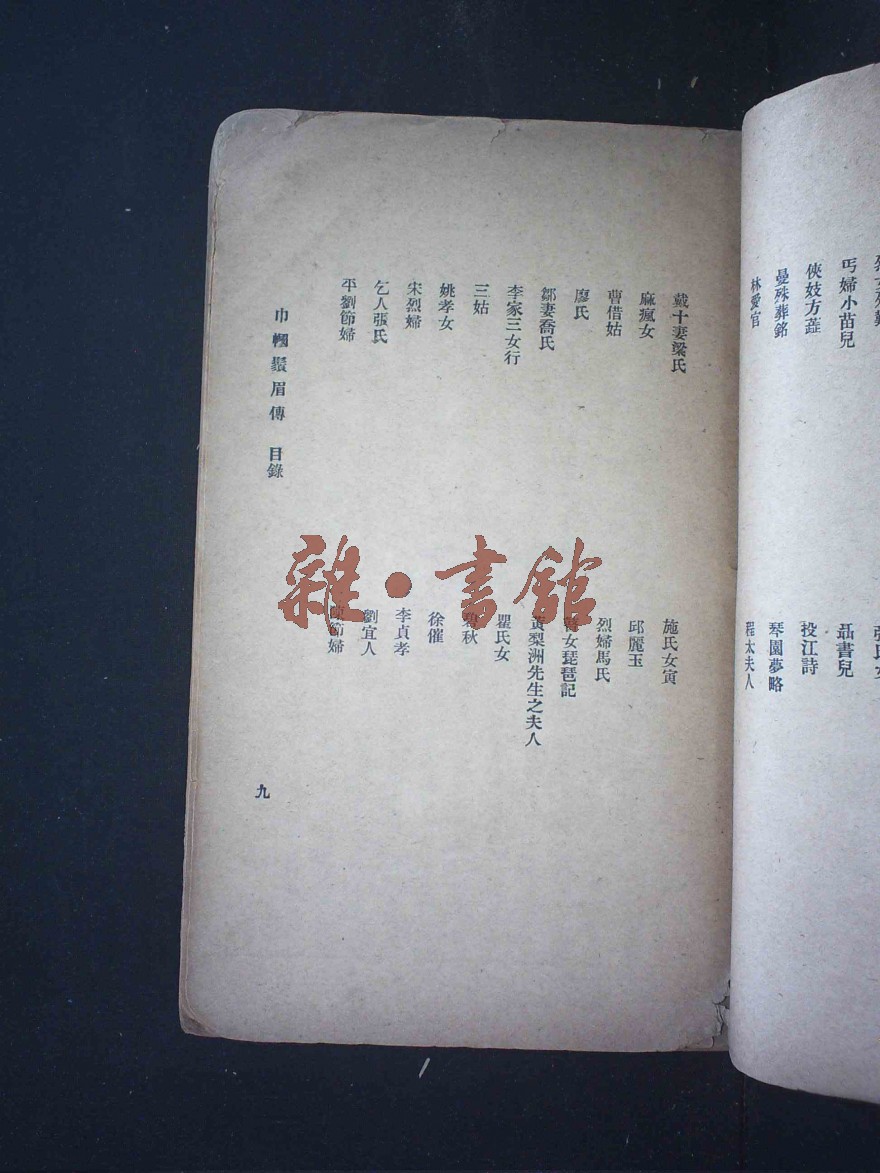 張氏女
丐婦小苗兒
聶書兒
俠妓方蘁
投江詩
曼殊葬銘
琴園夢略
林愛官
程太夫人
戴十妻梁氏
施氏女寅
麻瘋女
邱麗玉
曹借姑
烈婦馬氏
廖氏
女琵琶記
鄒妻喬氏
黃梨洲先生之夫人
李家三女行
瞿氏女
三姑
碧秋
姚孝女
徐催
宋烈婦
李貞孝
乞人張氏
劉宜人
平劉節婦
陳節婦
巾幗鬚眉傳 目錄
九
雜·書館